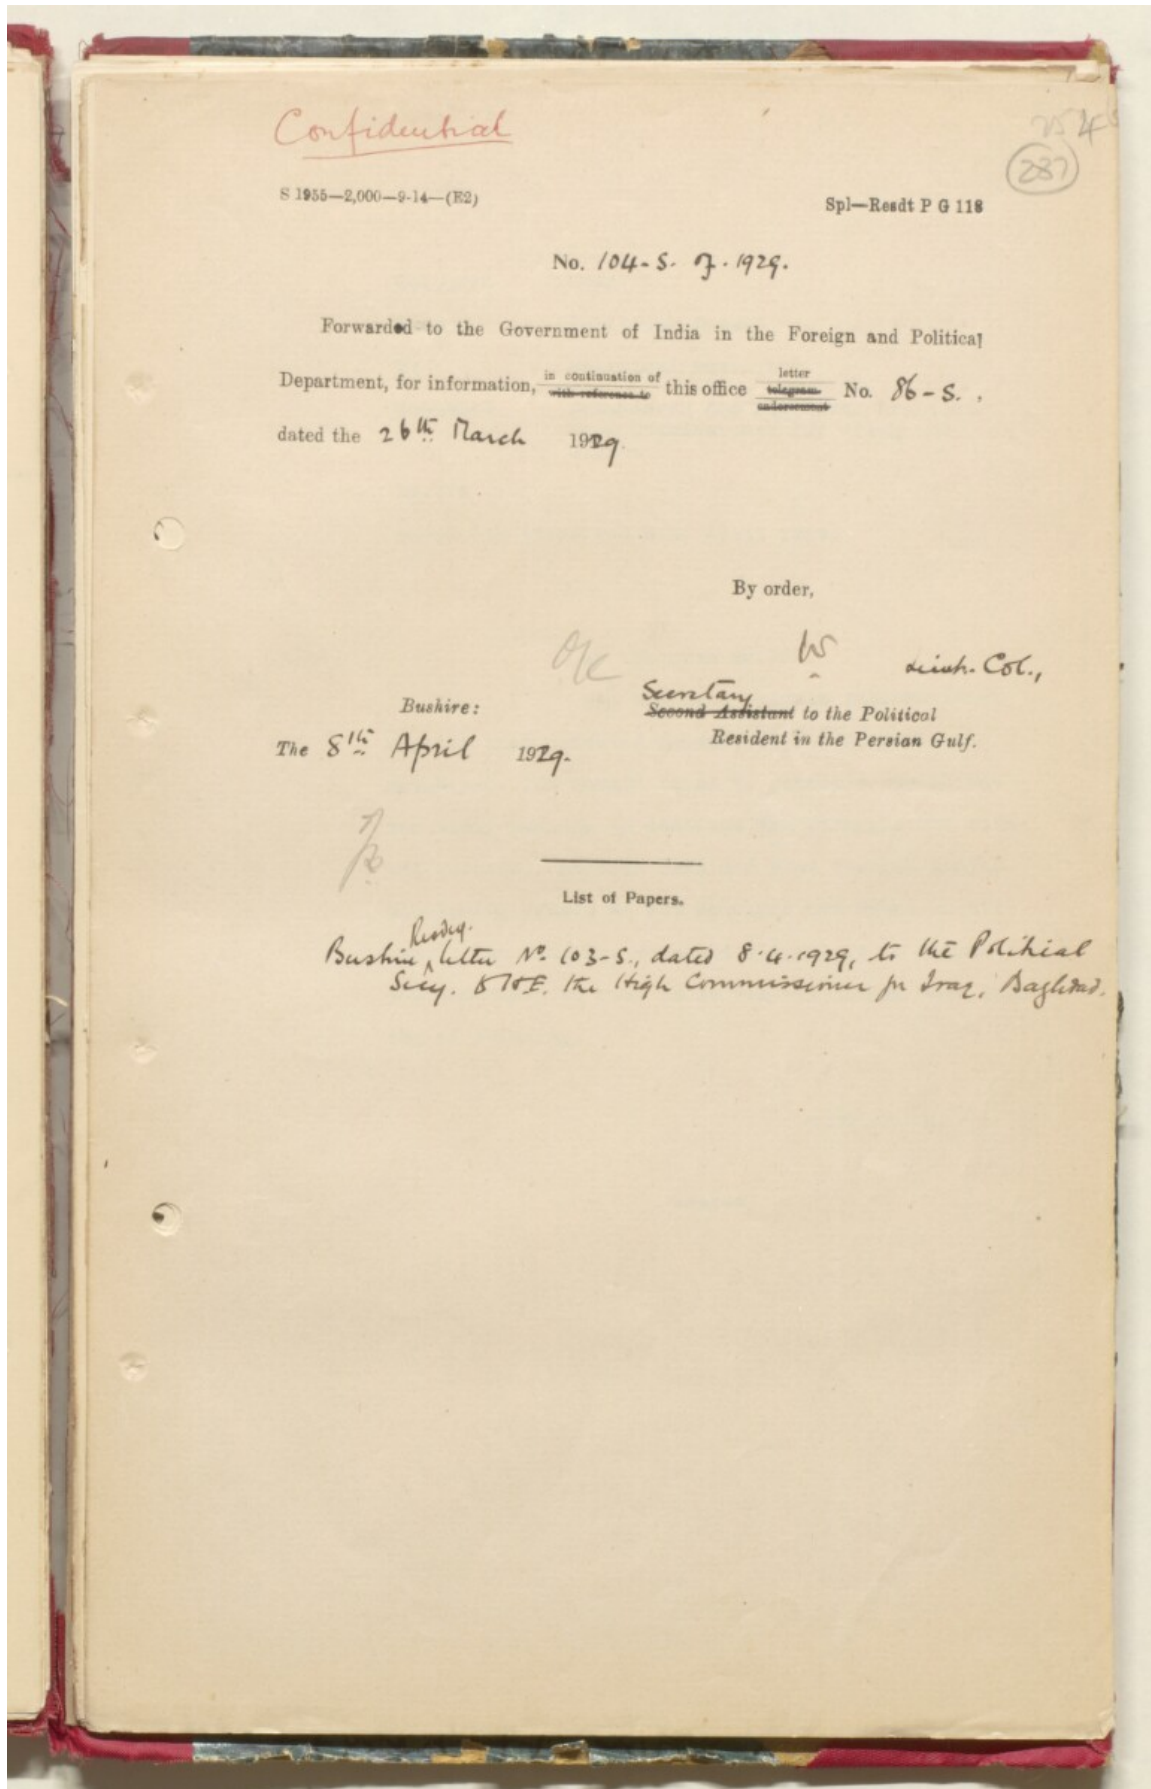 Confidential
254
287
S 1955—2,000—9-14—(E2)
Spl—Resdt P G 118
No. 104-S. of. 1929.
Forwarded to the Government of India in the Foreign and Political
Department, for information, in continuation of with reference to this office letter telegram endorsement No. 86-S. ,
dated the 26th March 1929.
By order,
Lieut. Col.,
Secretary
Second Assistant to the Political
Bushire:
Resident in the Persian Gulf.
The 8th April 1929.
List of Papers.
Resdcy.
Bushire letter No. 103-S., dated 8.4.1929, to the Political
Secy. to H.E. the High Commissioner for Iraq, Baghdad.